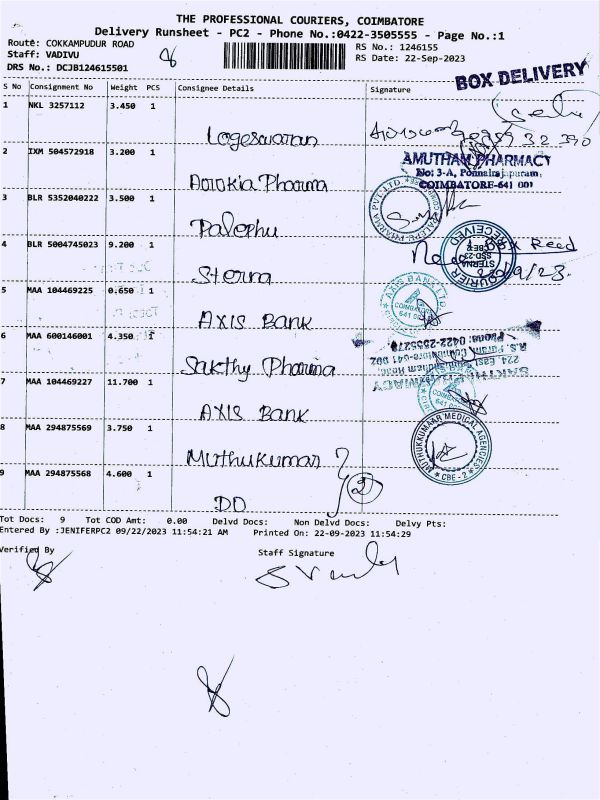 THE PROFESSIONAL COURIERS, COIMBATORE
Delivery Runsheet - PC2 - Phone No.:0422-3505555 - Page No.:1
Route: COKKAMPUDUR ROAD
RS No.: 1246155
Staff: VADIVU
RS Date: 22-Sep-2023
DRS No.: DCJB124615501
BOX DELIVERY
S No Consignment No Weight PCS Consignee Details Signature
1 NKL 3257112 3.450 1
Logeswaran
2 IXM 504572918 3.200 1
AMUTHAM PHARMACY
No: 3-A, Ponnairajapuram,
COIMBATORE-641 001
Arokia Pharma
3 BLR 5352040222 3.500 1
Palephu
4 BLR 5004745023 9.200 1
COURIER RECEIVED
Sterna
5 MAA 104469225 0.650 1
AXIS BANK LTD
COIMBATORE
AXIS Bank
6 MAA 600146001 4.350 1
SAKTHI PHARMACY
224, East
R.S. Puram, Coimbatore-641 002
Phone: 0422-2555275
Sakthy Pharma
7 MAA 104469227 11.700 1
AXIS Bank
8 MAA 294875569 3.750 1
MUTHUKKUMAAR MEDICAL AGENCIES
* CBE - 2 *
Muthukumar
9 MAA 294875568 4.600 1
2
DD
Tot Docs: 9 Tot COD Amt: 0.00 Delvd Docs: Non Delvd Docs: Delvy Pts:
Entered By :JENIFERPC2 09/22/2023 11:54:21 AM Printed On: 22-09-2023 11:54:29
Verified By
Staff Signature